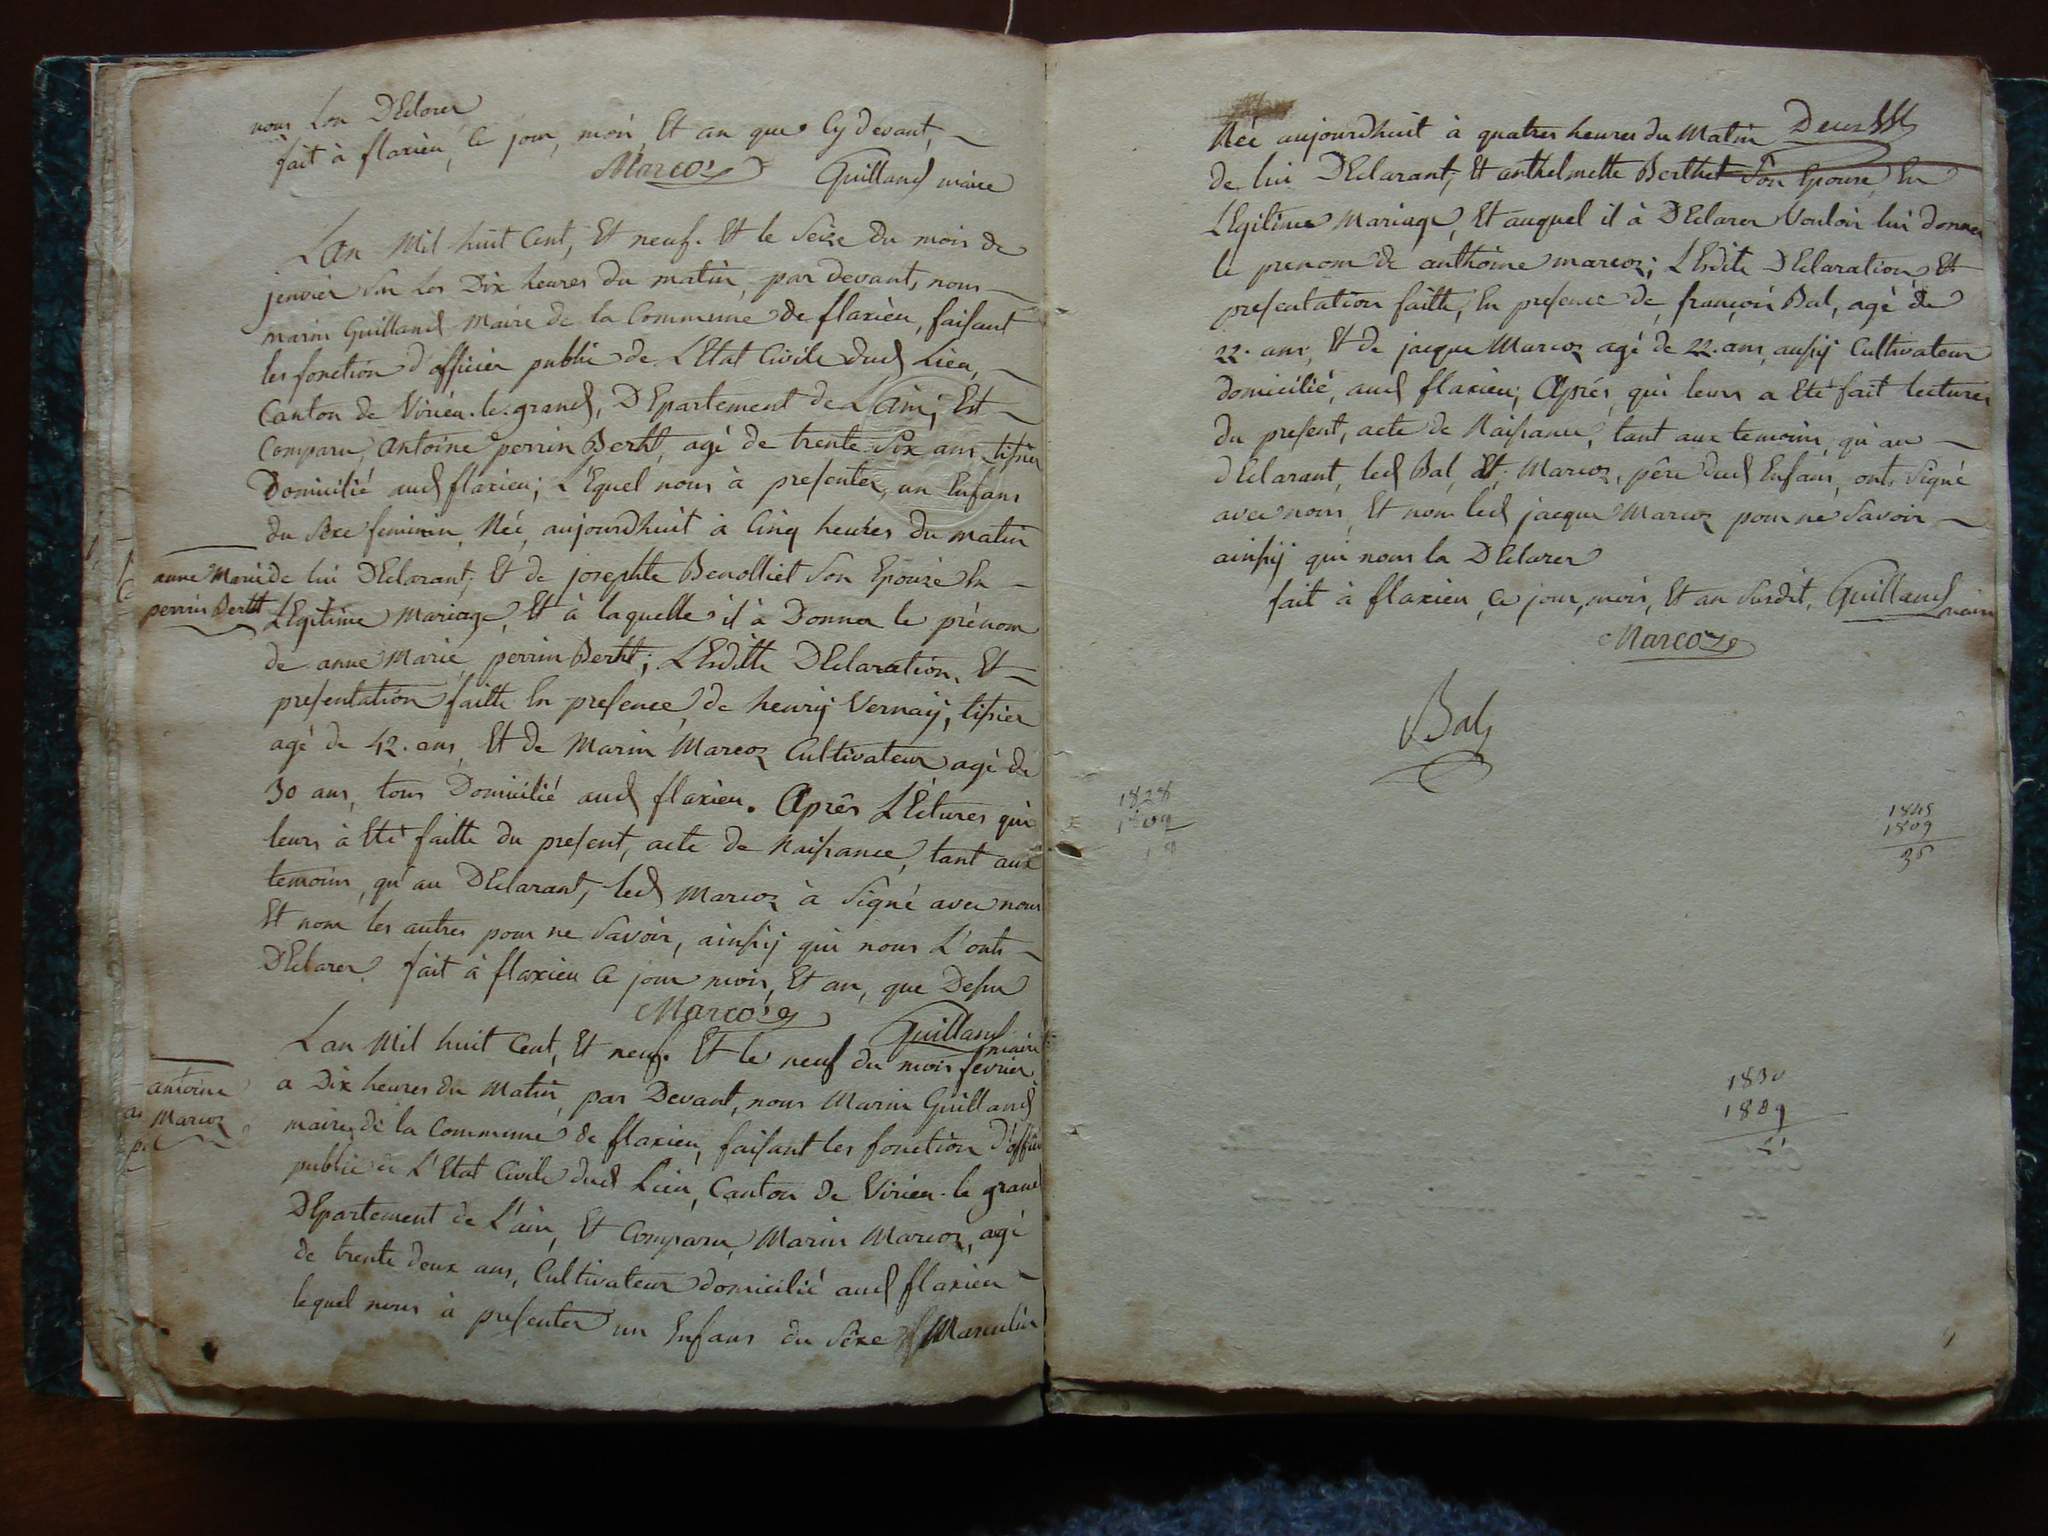 nous L'on DEclarer
fait à flaxieu, Ce jour, mois, Et an que Cy devant,
Marcoz Guilland maire
L'an Mil huit Cent, Et neuf. Et le Seize Du mois de
jenvier Sur Les Dix heures du matin, par devant, nous
marin Guilland Maire de la Commune de flaxieu, faisant
les fonction d'officier public de L'Etat Civile dud Lieu,
Canton de Virieu-le-grand, DEpartement de L'ain; Est
Comparu, antoine perrin Bertht, agé de trente Six ans tisier
Domicilié aud flaxieu; L'Equel nous à presenter, un Enfans
du Sexe feminin, Née, aujourdhuit à Cinq heures du matin
anne Marie
perrin Bertht
de lui DEclarant; Et de josephte Benolliet Son Epouse En
LEgitime Mariage, Et à laquelle il à Donner le prénom
de anne Marie, perrin Bertht; LEsditte DEclaration, Et
presentation faitte En presence de henrÿ Vernaÿ, tisier
agé de 42. ans, Et de Marin Marcoz Cultivateur agé de
30 ans, tous Domicilié aud flaxieu. Aprês LEctures qui
leurs à Eté faitte du present, acte de Naissance, tant aux
temoins, qu'au DEclarant, led Marcoz à Signé avec nous
Et nom les autres pour ne Savoir, ainsÿ qui nous L'onts
DEclarer. fait à flaxieu Ce jour mois, Et an, que Desu
Marcoz Guilland maire
antoine
Marcoz
L'an Mil huit Cent, Et neuf. Et le neuf du mois fevrier
a Dix heures du Matin, par Devant, nous Marin Guilland
maire de la Commune de flaxieu, faisant les fonction d'offici
public de L'Etat Civile dud Lieu, Canton de Virieu-le grand
DEpartement de L'ain, Et Comparu, Marin Marcoz, agé
de trente deux ans, Cultivateur domicilié aud flaxieu
lequel nous à presenter un Enfans du Sêxe Masculin
Née aujourdhuit à quatres heures du Matin
de lui DEclarant; Et anthelmette Berthet Son Epouse, En
LEgitime Mariage, Et auquel il à DEclarer Vouloir lui donner
le prenom de anthoine marcoz; LEsdite DEclaration, Et
presentation faitte, En presence de, françois Bal, agé de
22. ans, Et de jacque Marcoz agé de 22. ans, aussÿ Cultivateur
Domicilié, aud flaxieu; Aprés, qui leurs a Eté fait lectures
du present, acte de Naissance, tant aux temoins, qu'au
dEclarant, led Bal, Et, Marcoz, pére dud Enfans, onts Signé
avec nous, Et nom led jacque Marcoz pour ne Savoir
ainsÿ qui nous la DEclarer
fait à flaxieu, Ce jour, mois, Et an Susdit, Guilland maire
Marcoz
Bal
1828
1809
1845
1809
36
1830
1809
21